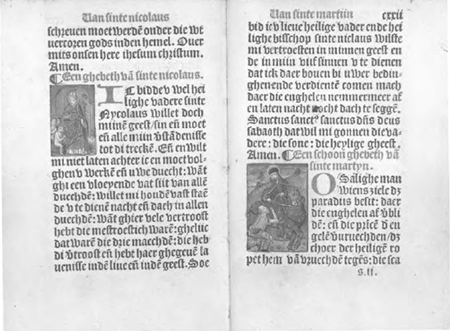 Van sinte nicolaus
schreuen moet werdē onder die wt
vercoren gods inden hemel. Ouer
mits onsen here thesum christum.
Amen.
⁋Een ghebeth vā sinte nicolaus.
IC bidde v wel hei
lighe vadere sinte
Nycolaus willet doch
minē geest/sin eñ moet
eñ alle min vstādenisse
tot di treckē. Eñ en wilt
mi niet laten achter ic en moet vol
ghen v werckē eñ v we duecht. wāt
ghi een vloeyende vat siit van allē
duechdē: willet mi hondē vast staē
de v te dienē nacht eñ dach in allen
duechdē: wāt ghi er vele vertroost
hebt die mestroestich warē: ghelüc
dat warē die drie maechdē: die heb
di v̄troost eñ hebt haer ghegeuē la
uenisse indē liue eñ indē geest. Soe
Van sinte martijn cxxii
bid ic v lieue heilige vader ende hei
lighe bisschop sinte niclaus wilste
mi vertroesten in minnen geest en
de in miin vijf sinnen v te dienen
dat ick daer bouen bi v wer bedin-
ghenende verdientē comen mach
daer die enghelen nemmermeer af
en laten nacht nocht dach te seggē.
Sanctus sanctꝰ sanctus dñs deus
sabaoth dat wil mi gonnen die va-
dere: die sone: die heylige gheest.
Amen. ⁋Een schoon ghebeth vā
sinte martyn.
O Salighe man
wiens ziele dz
paradijs besit: daer
die enghelen af v̄bli
dē: eñ die pricē d en
gelē vuruechden/dz
choer der heiligē ro
pet hem vā vruechdē tegēs: die sca
s.ii.